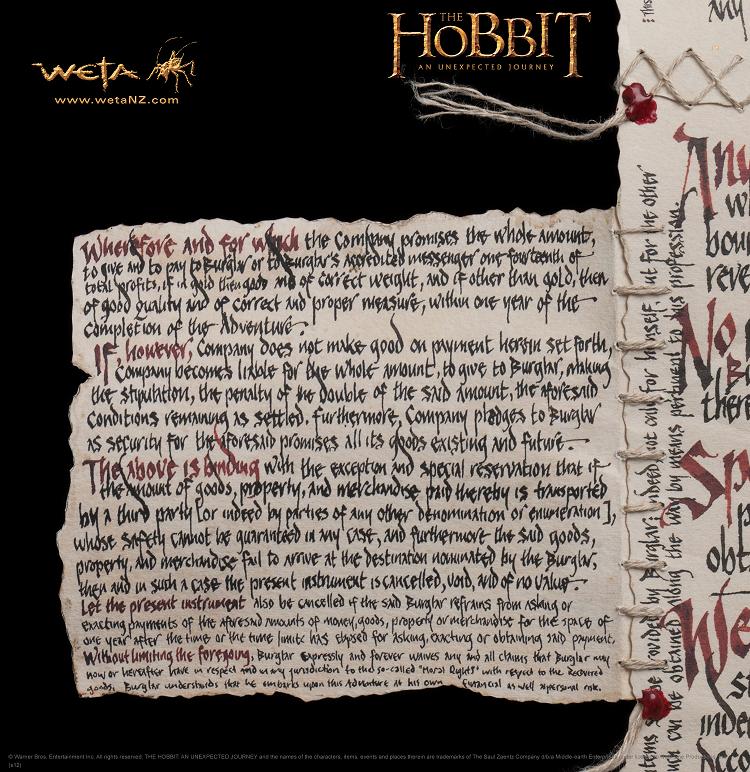 WETA
www.wetaNZ.com
THE
HOBBIT
AN UNEXPECTED JOURNEY
Wherefore and for which the Company promises the whole amount,
to give and to pay to Burglar or to Burglar's accredited messenger one fourteenth of
total profits, if in gold then good and of correct weight, and if other than gold, then
of good quality and of correct and proper measure, within one year of the
completion of the Adventure.
If, however, Company does not make good on payment herein set forth,
Company becomes liable for the whole amount, to give to Burglar, making
the stipulation, the penalty of the double of the said amount, the aforesaid
conditions remaining as settled. Furthermore, Company pledges to Burglar
as security for the aforesaid promises all its goods existing and future.
The above is binding with the exception and special reservation that if
the amount of goods, property, and merchandise paid thereby is transported
by a third party [or indeed by parties of any other denomination or enumeration],
whose safety cannot be guaranteed in any case, and furthermore the said goods,
property, and merchandise fail to arrive at the destination nominated by the Burglar,
then and in such a case the present instrument is cancelled, void, and of no value.
Let the present instrument also be cancelled if the said Burglar refrains from asking or
exacting payments of the aforesaid amounts of money, goods, property or merchandise for the space of
one year after the time or the time limit has elapsed for asking, exacting or obtaining said payment.
Without limiting the foregoing, Burglar expressly and forever waives any and all claims that Burglar may
now or hereafter have in respect and in any jurisdiction to the so-called "Moral Rights" with respect to the Recovered
goods. Burglar understands that he embarks upon this Adventure at his own financial as well as personal risk.
avoided by Burglar; indeed not only for himself, but for the other
can be obtained along the way by means pertinent to his profession.
any
No
there
We
© Warner Bros. Entertainment Inc. All rights reserved. THE HOBBIT: AN UNEXPECTED JOURNEY and the names of the characters, items, events and places therein are trademarks of The Saul Zaentz Company d/b/a Middle-earth Enterprises under license
(s12)